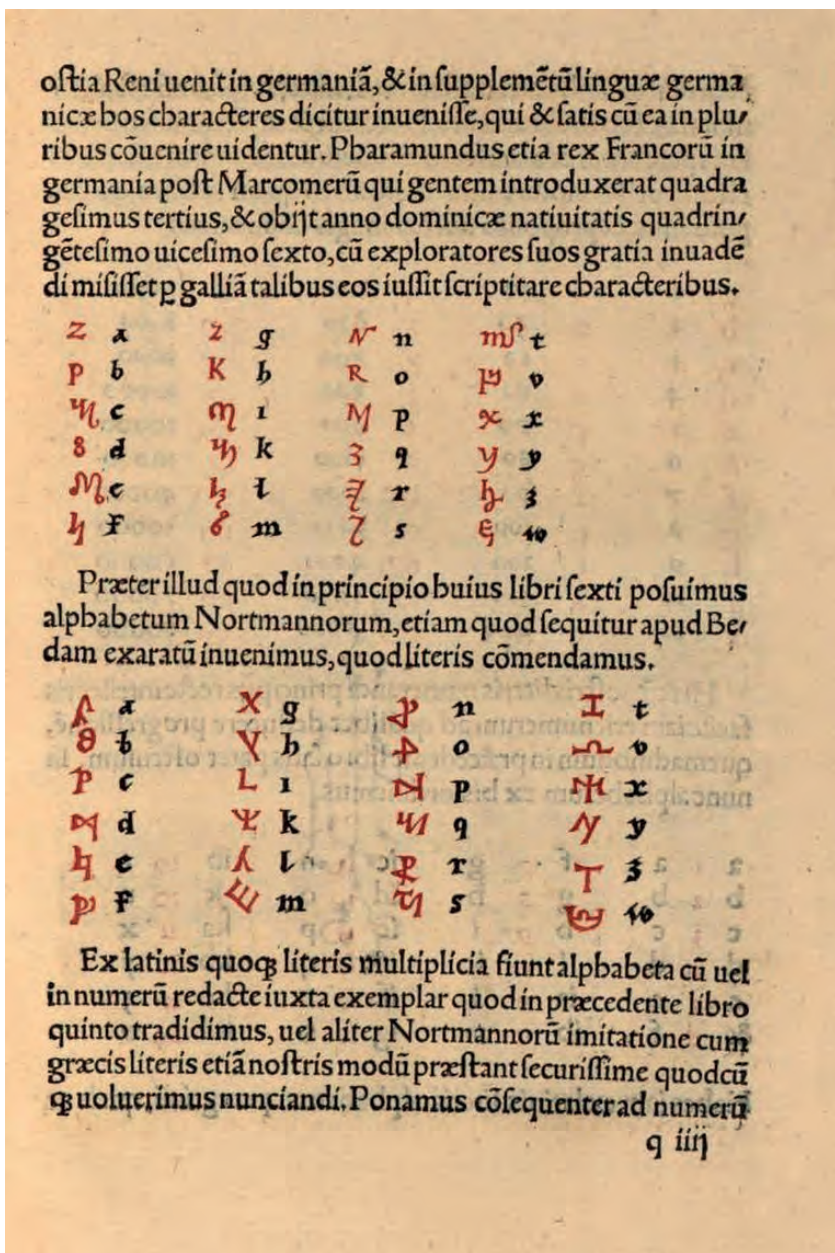 oſtia Reni uenit in germaniā, & in ſupplemētū linguæ germa
nicæ hos characteres dicitur inueniſſe, qui & ſatis cū ea in plu⸗
ribus cōuenire uidentur. Pharamundus etia rex Francorū in
germania poſt Marcomerū qui gentem introduxerat quadra
geſimus tertius, & obijt anno dominicæ natiuitatis quadrin⸗
gēteſimo uiceſimo ſexto, cū exploratores ſuos gratia inuadē
di miſiſſet ꝑ galliā talibus eos iuſſit ſcriptitare characteribus.
a g n t
b h o v
c i p x
d k q y
e l r z
f m s w
Præter illud quod in principio huius libri ſexti poſuimus
alphabetum Nortmannorum, etiam quod ſequitur apud Be⸗
dam exaratū inuenimus, quod literis cōmendamus.
a g n t
b h o v
c i p x
d k q y
e l r z
f m s w
Ex latinis quoqꝫ literis multiplicia fiunt alphabeta cū uel
in numerū redacte iuxta exemplar quod in præcedente libro
quinto tradidimus, uel aliter Nortmannorū imitatione cum
græcis literis etiā noſtris modū præſtant ſecuriſſime quodcū
qꝫ uoluerimus nunciandi. Ponamus cōſequenter ad numerū
q iiij